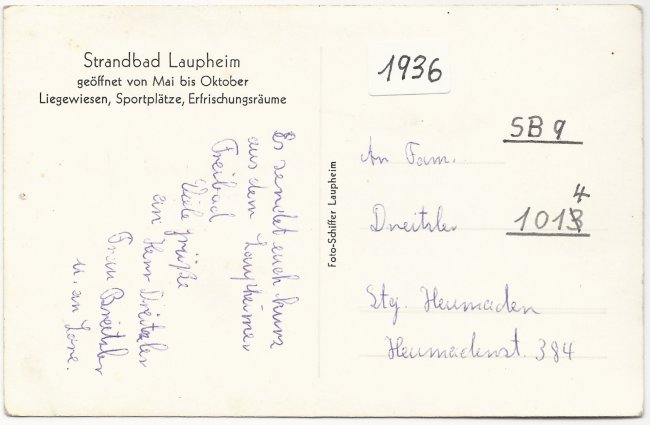 Strandbad Laupheim
geöffnet von Mai bis Oktober
Liegewiesen, Sportplätze, Erfrischungsräume
Es sendet euch kurz
aus dem Laupheimer
Freibad
Viele grüße
an Herr Dreitzler
Frau Breitzler
u. an Lore.
Foto-Schiffer Laupheim
1936
SB 9
An Fam.
Dreitzler
4
1013
Stg. Heumaden
Heumadenst. 384